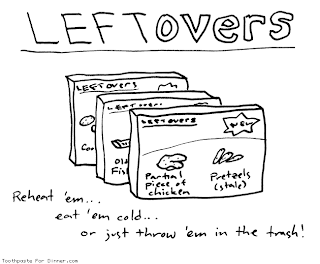 LEFTOVERS
LEFTOVERS
LEFTOVERS
LEFTOVERS
NEW
Old
Fish
Partial
piece of
chicken
Pretzels
(stale)
Reheat 'em...
eat 'em cold...
or just throw 'em in the trash!
Toothpaste For Dinner.com